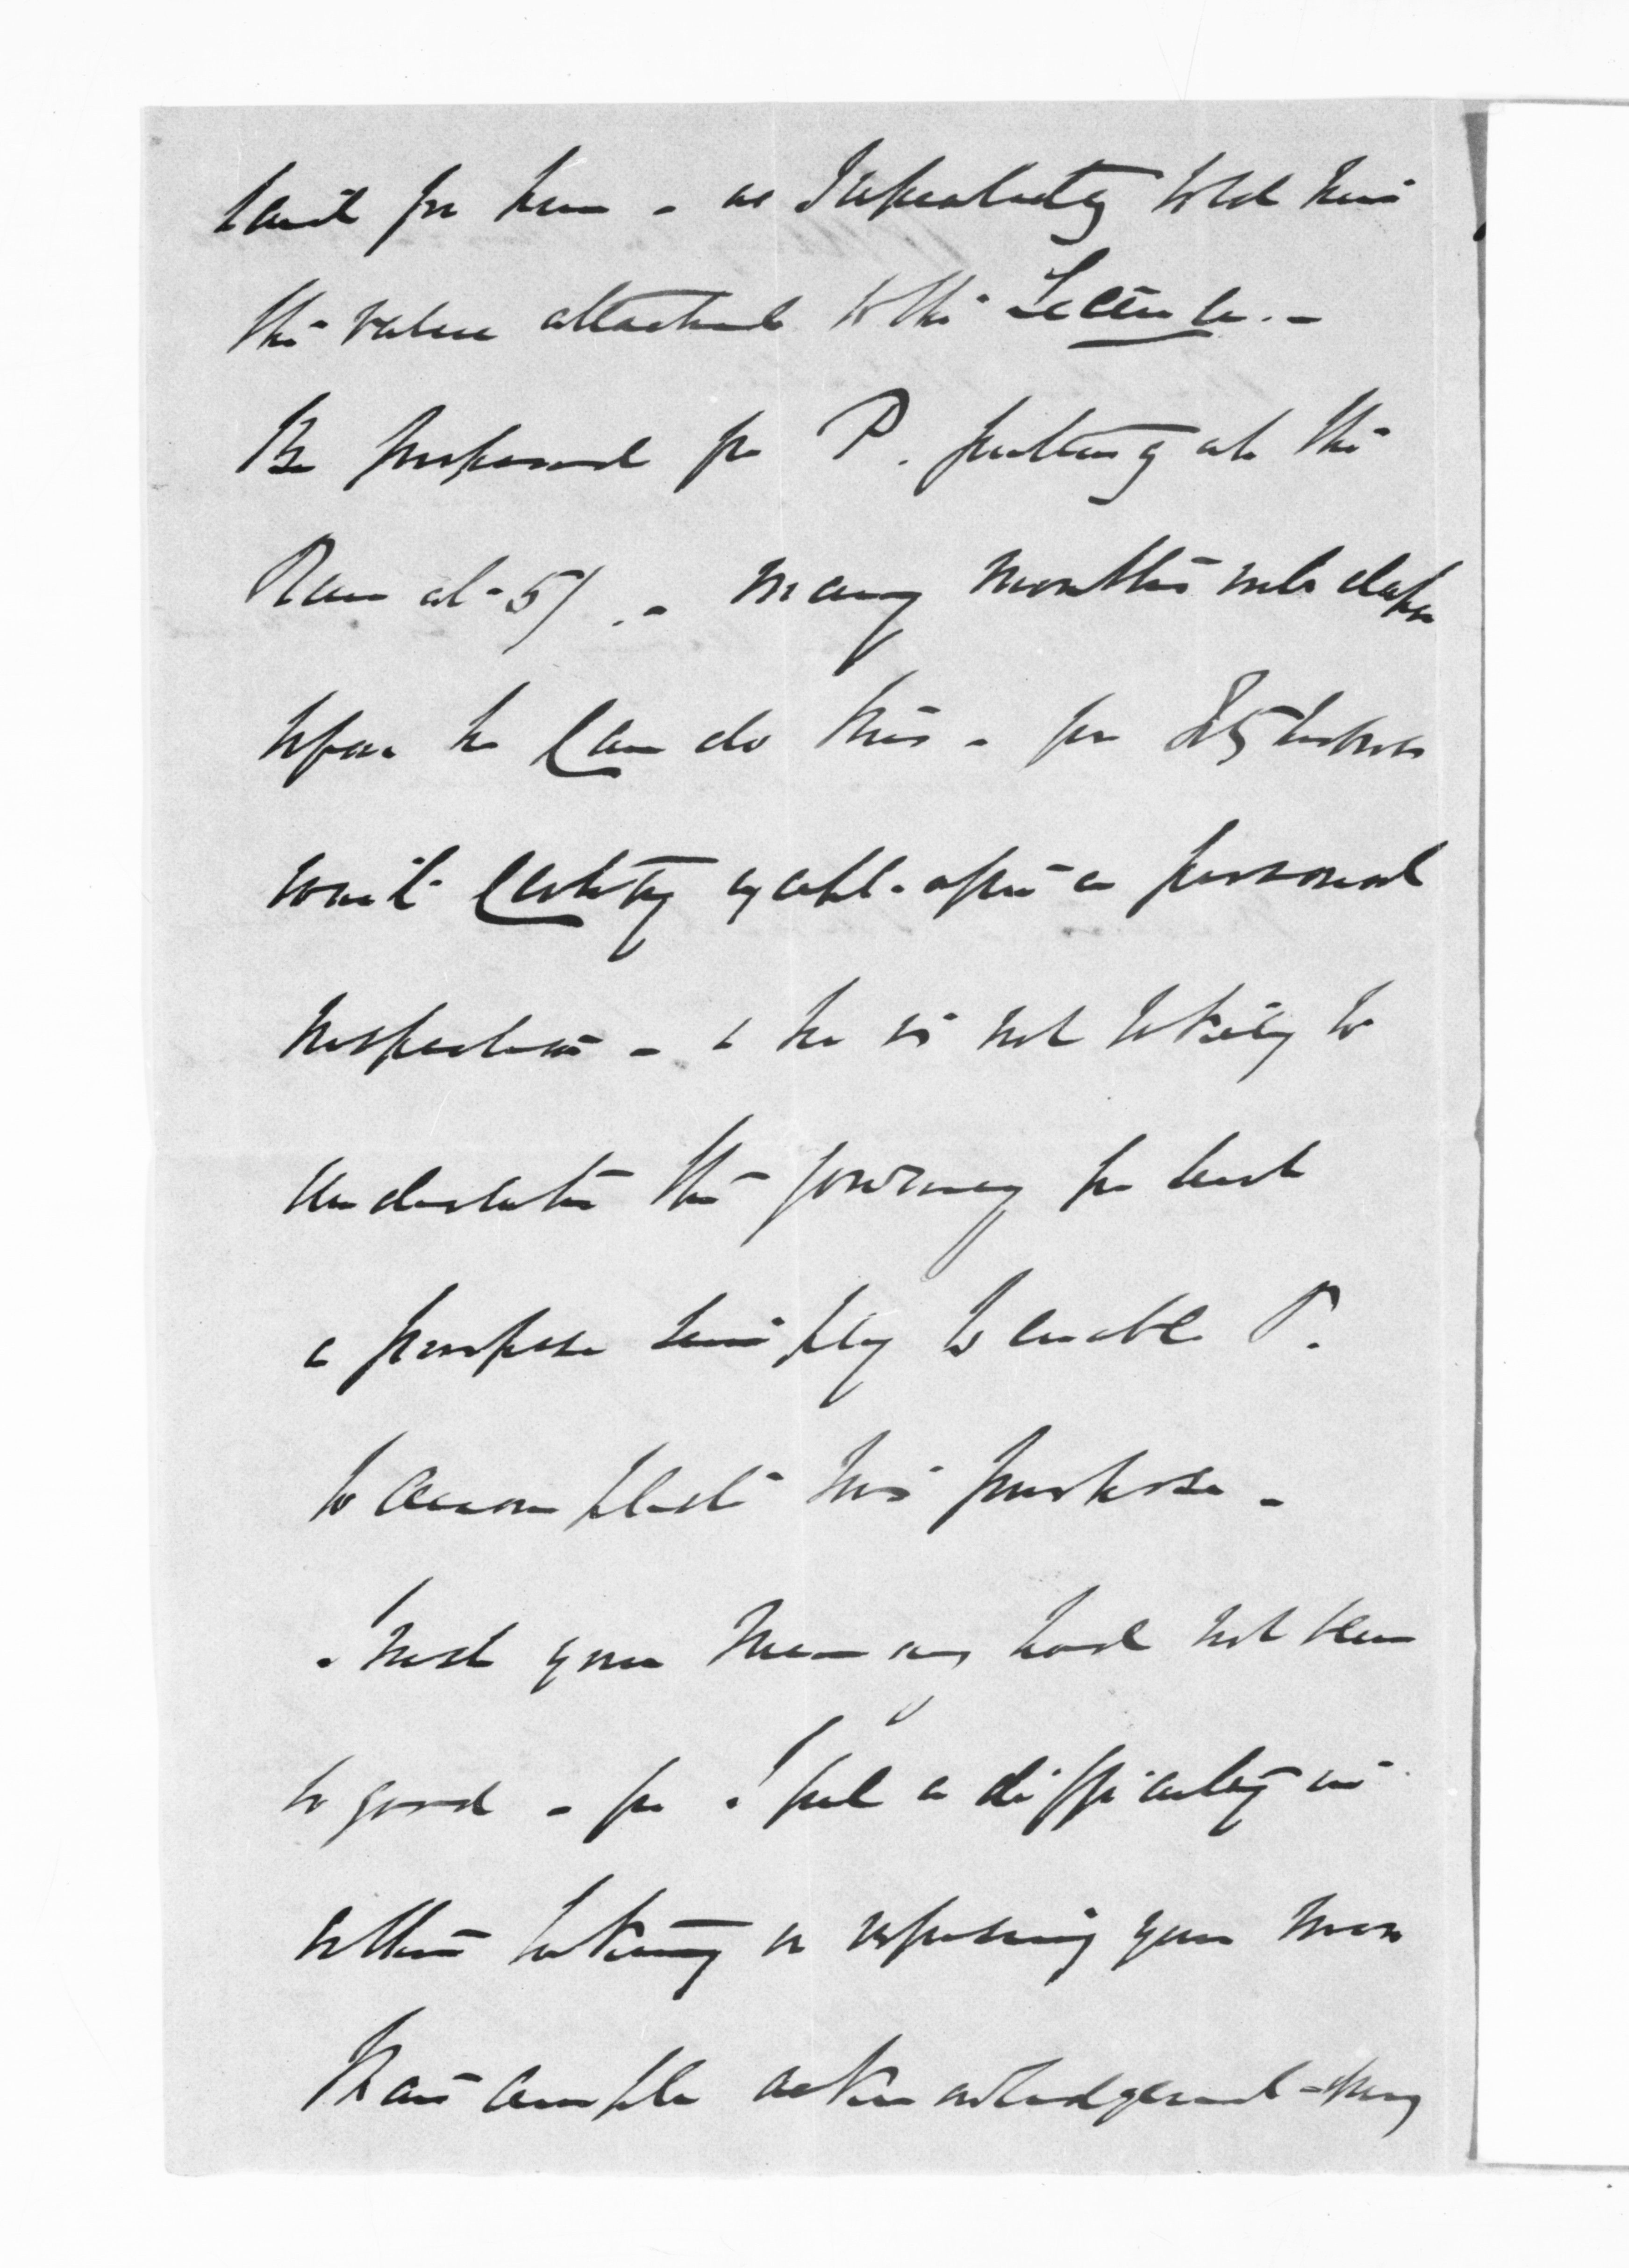 for him - as I repeatedly told him
the value attached to the
Be prepared for P. putting at the
at 5/. - many months will elapse
before he can do this - for
wait certify until after a personal
inspection - & he is not likely to
undertake the journey for such
a purpose simply to enable P.
to accomplish his purpose -
I wish your memory had not been
so good - for I feel a difficulty in
either taking or refusing your more
than ample acknowledgement